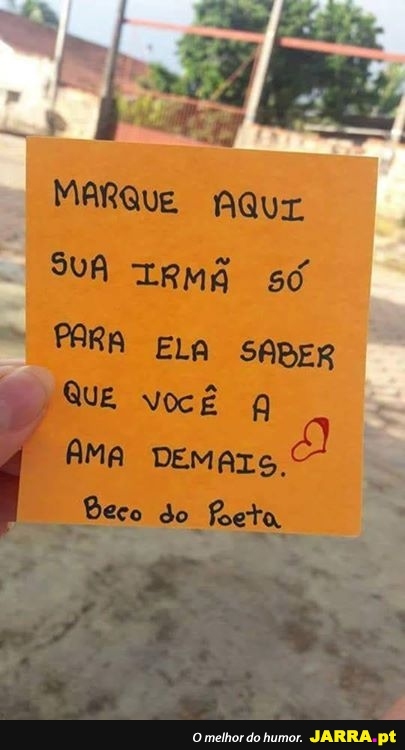 MARQUE AQUI
SUA IRMÃ SÓ
PARA ELA SABER
QUE VOCÊ A
AMA DEMAIS.
Beco do Poeta
O melhor do humor. JARRA.pt